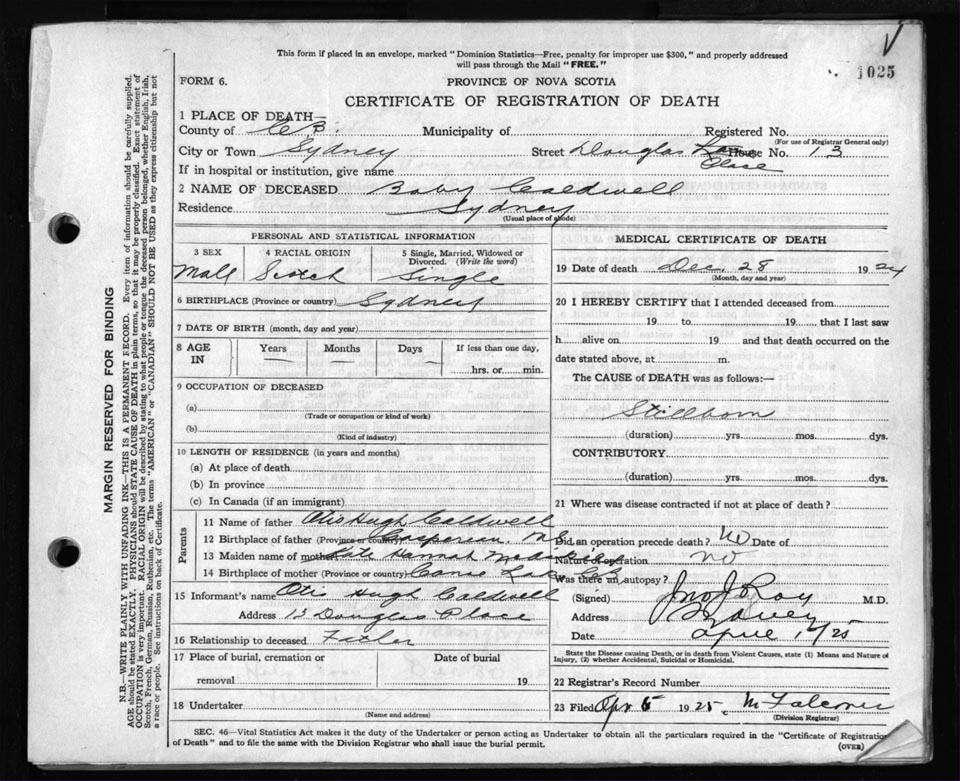 This form if placed in an envelope, marked "Dominion Statistics—Free, penalty for improper use $300," and properly addressed
will pass through the Mail "FREE."
1025
FORM 6.
PROVINCE OF NOVA SCOTIA
CERTIFICATE OF REGISTRATION OF DEATH
1 PLACE OF DEATH—
County of C.B. Municipality of Registered No.
(For use of Registrar General only)
City or Town Sydney Street Douglas House No. 13
Place
If in hospital or institution, give name
2 NAME OF DECEASED Baby Caldwell
Residence Sydney
(Usual place of abode)
PERSONAL AND STATISTICAL INFORMATION
3 SEX 4 RACIAL ORIGIN 5 Single, Married, Widowed or Divorced. (Write the word)
Male Scotch Single
6 BIRTHPLACE (Province or country) Sydney
7 DATE OF BIRTH (month, day and year)
8 AGE IN Years Months Days If less than one day,
hrs. or min.
9 OCCUPATION OF DECEASED
(a)
(Trade or occupation or kind of work)
(b)
(Kind of industry)
10 LENGTH OF RESIDENCE (in years and months)
(a) At place of death
(b) In province
(c) In Canada (if an immigrant)
Parents
11 Name of father Otis Hugh Caldwell
12 Birthplace of father (Province or country) Gaspereau, N.S.
13 Maiden name of mother Kate Hannah
14 Birthplace of mother (Province or country)
15 Informant's name Otis Hugh Caldwell
Address 13 Douglas Place
16 Relationship to deceased Father
17 Place of burial, cremation or removal Date of burial
19
18 Undertaker
(Name and address)
MEDICAL CERTIFICATE OF DEATH
19 Date of death Dec. 28 1924
(Month, day and year)
20 I HEREBY CERTIFY that I attended deceased from
19 to 19, that I last saw
h alive on 19 and that death occurred on the
date stated above, at m.
The CAUSE of DEATH was as follows:—
Stillborn
(duration) yrs. mos. dys.
CONTRIBUTORY
(duration) yrs. mos. dys.
21 Where was disease contracted if not at place of death?
Did an operation precede death? No Date of
Nature of operation No
Was there an autopsy?
(Signed) Jno J Roy M.D.
Address Sydney
Date April 1/25
State the Disease causing Death, or in death from Violent Causes, state (1) Means and Nature of
Injury, (2) whether Accidental, Suicidal or Homicidal.
22 Registrar's Record Number
23 Filed Apr 5 1925 M Falconer
(Division Registrar)
SEC. 46—Vital Statistics Act makes it the duty of the Undertaker or person acting as Undertaker to obtain all the particulars required in the "Certificate of Registration
of Death" and to file the same with the Division Registrar who shall issue the burial permit.
(OVER)
MARGIN RESERVED FOR BINDING
N.B.—WRITE PLAINLY WITH UNFADING INK—THIS IS A PERMANENT RECORD. Every item of information should be carefully supplied.
AGE should be stated EXACTLY. PHYSICIANS should STATE CAUSE OF DEATH in plain terms, so that it may be properly classified. Exact statement of
OCCUPATION is very important. RACIAL ORIGIN will be described by stating to what people or tongue the deceased person belonged, whether English, Irish,
Scotch, French, German, Russian, Ruthenian, etc. The terms "AMERICAN" or "CANADIAN" SHOULD NOT BE USED as they express citizenship but not
a race or people. See instructions on back of Certificate.